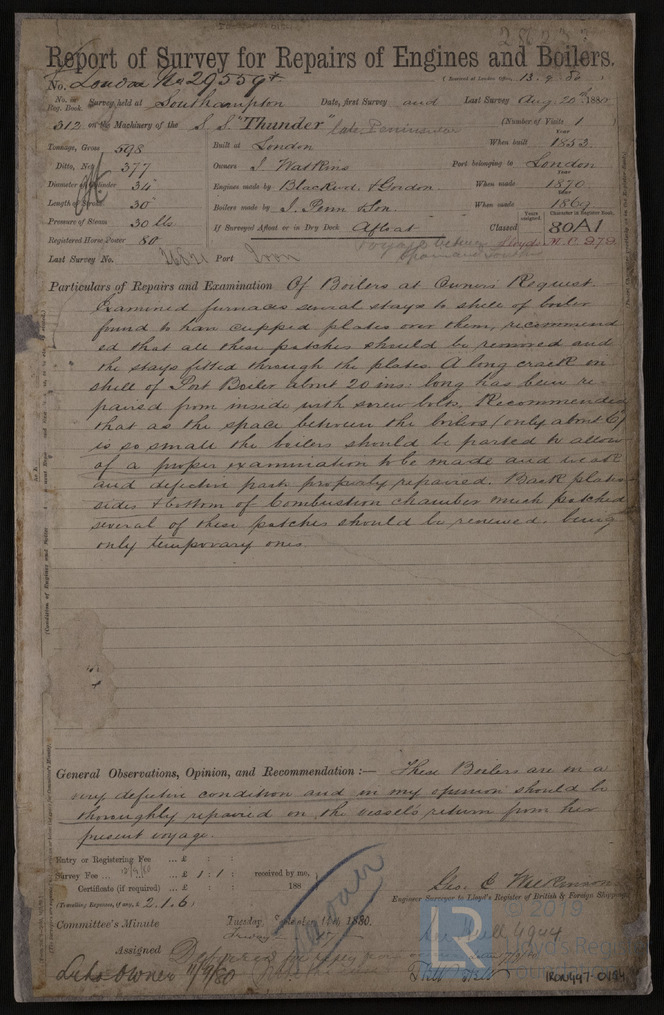 Report of Survey for Repairs of Engines and Boilers.
No. London No 29559
(Received at London Office, 13.9.80)
No. in Reg. Book. Survey held at Southampton Date, first Survey and Last Survey Aug. 20th 1880
312 on the Machinery of the S.S. "Thunder" late Peninsular (Number of Visits 1
Tonnage, Gross 598 Built at London When built 1853
Ditto, Net 377 Owners J. Watkins Port belonging to London
Diameter of Cylinder 34" Engines made by Blackwood & Gordon When made 1870
Length of Stroke 30" Boilers made by J. Penn & Son When made 1869
Pressure of Steam 30 lbs If Surveyed Afloat or in Dry Dock Afloat Classed 80A1
Years assigned. Character in Register Book.
Registered Horse Power 80
Last Survey No. Port Iron
Particulars of Repairs and Examination Of Boilers at Owners Request.
Examined furnaces several stays to shell of boiler
found to have cupped plates over them, recommend
ed that all these patches should be removed and
the stays fitted through the plates. A long crack in
shell of Port Boiler about 20 ins: long has been re
paired from inside with screw bolts. Recommended
that as the space between the boilers (only about 6")
is so small the boilers should be parted to allow
of a proper examination to be made and weak
and defective parts properly repaired. Back plates
sides & bottom of Combustion chamber much patched
several of these patches should be renewed, being
only temporary ones
General Observations, Opinion, and Recommendation :— These Boilers are in a
very defective condition and in my opinion should be
thoroughly repaired on the vessel's return from her
present voyage.
Entry or Registering Fee ... £ : :
Survey Fee ... £ 1 : 1 : received by me,
Certificate (if required) ... £ : : 188
(Travelling Expenses, if any, £ 2.1.6)
Geo. C Wilkinson
Engineer Surveyor to Lloyd's Register of British & Foreign Shipping
Committee's Minute Tuesday, September 14th, 1880.
Assigned Deferred for reply from
11/9/80
© 2019
Lloyd's Register
Foundation
IRON497-0194